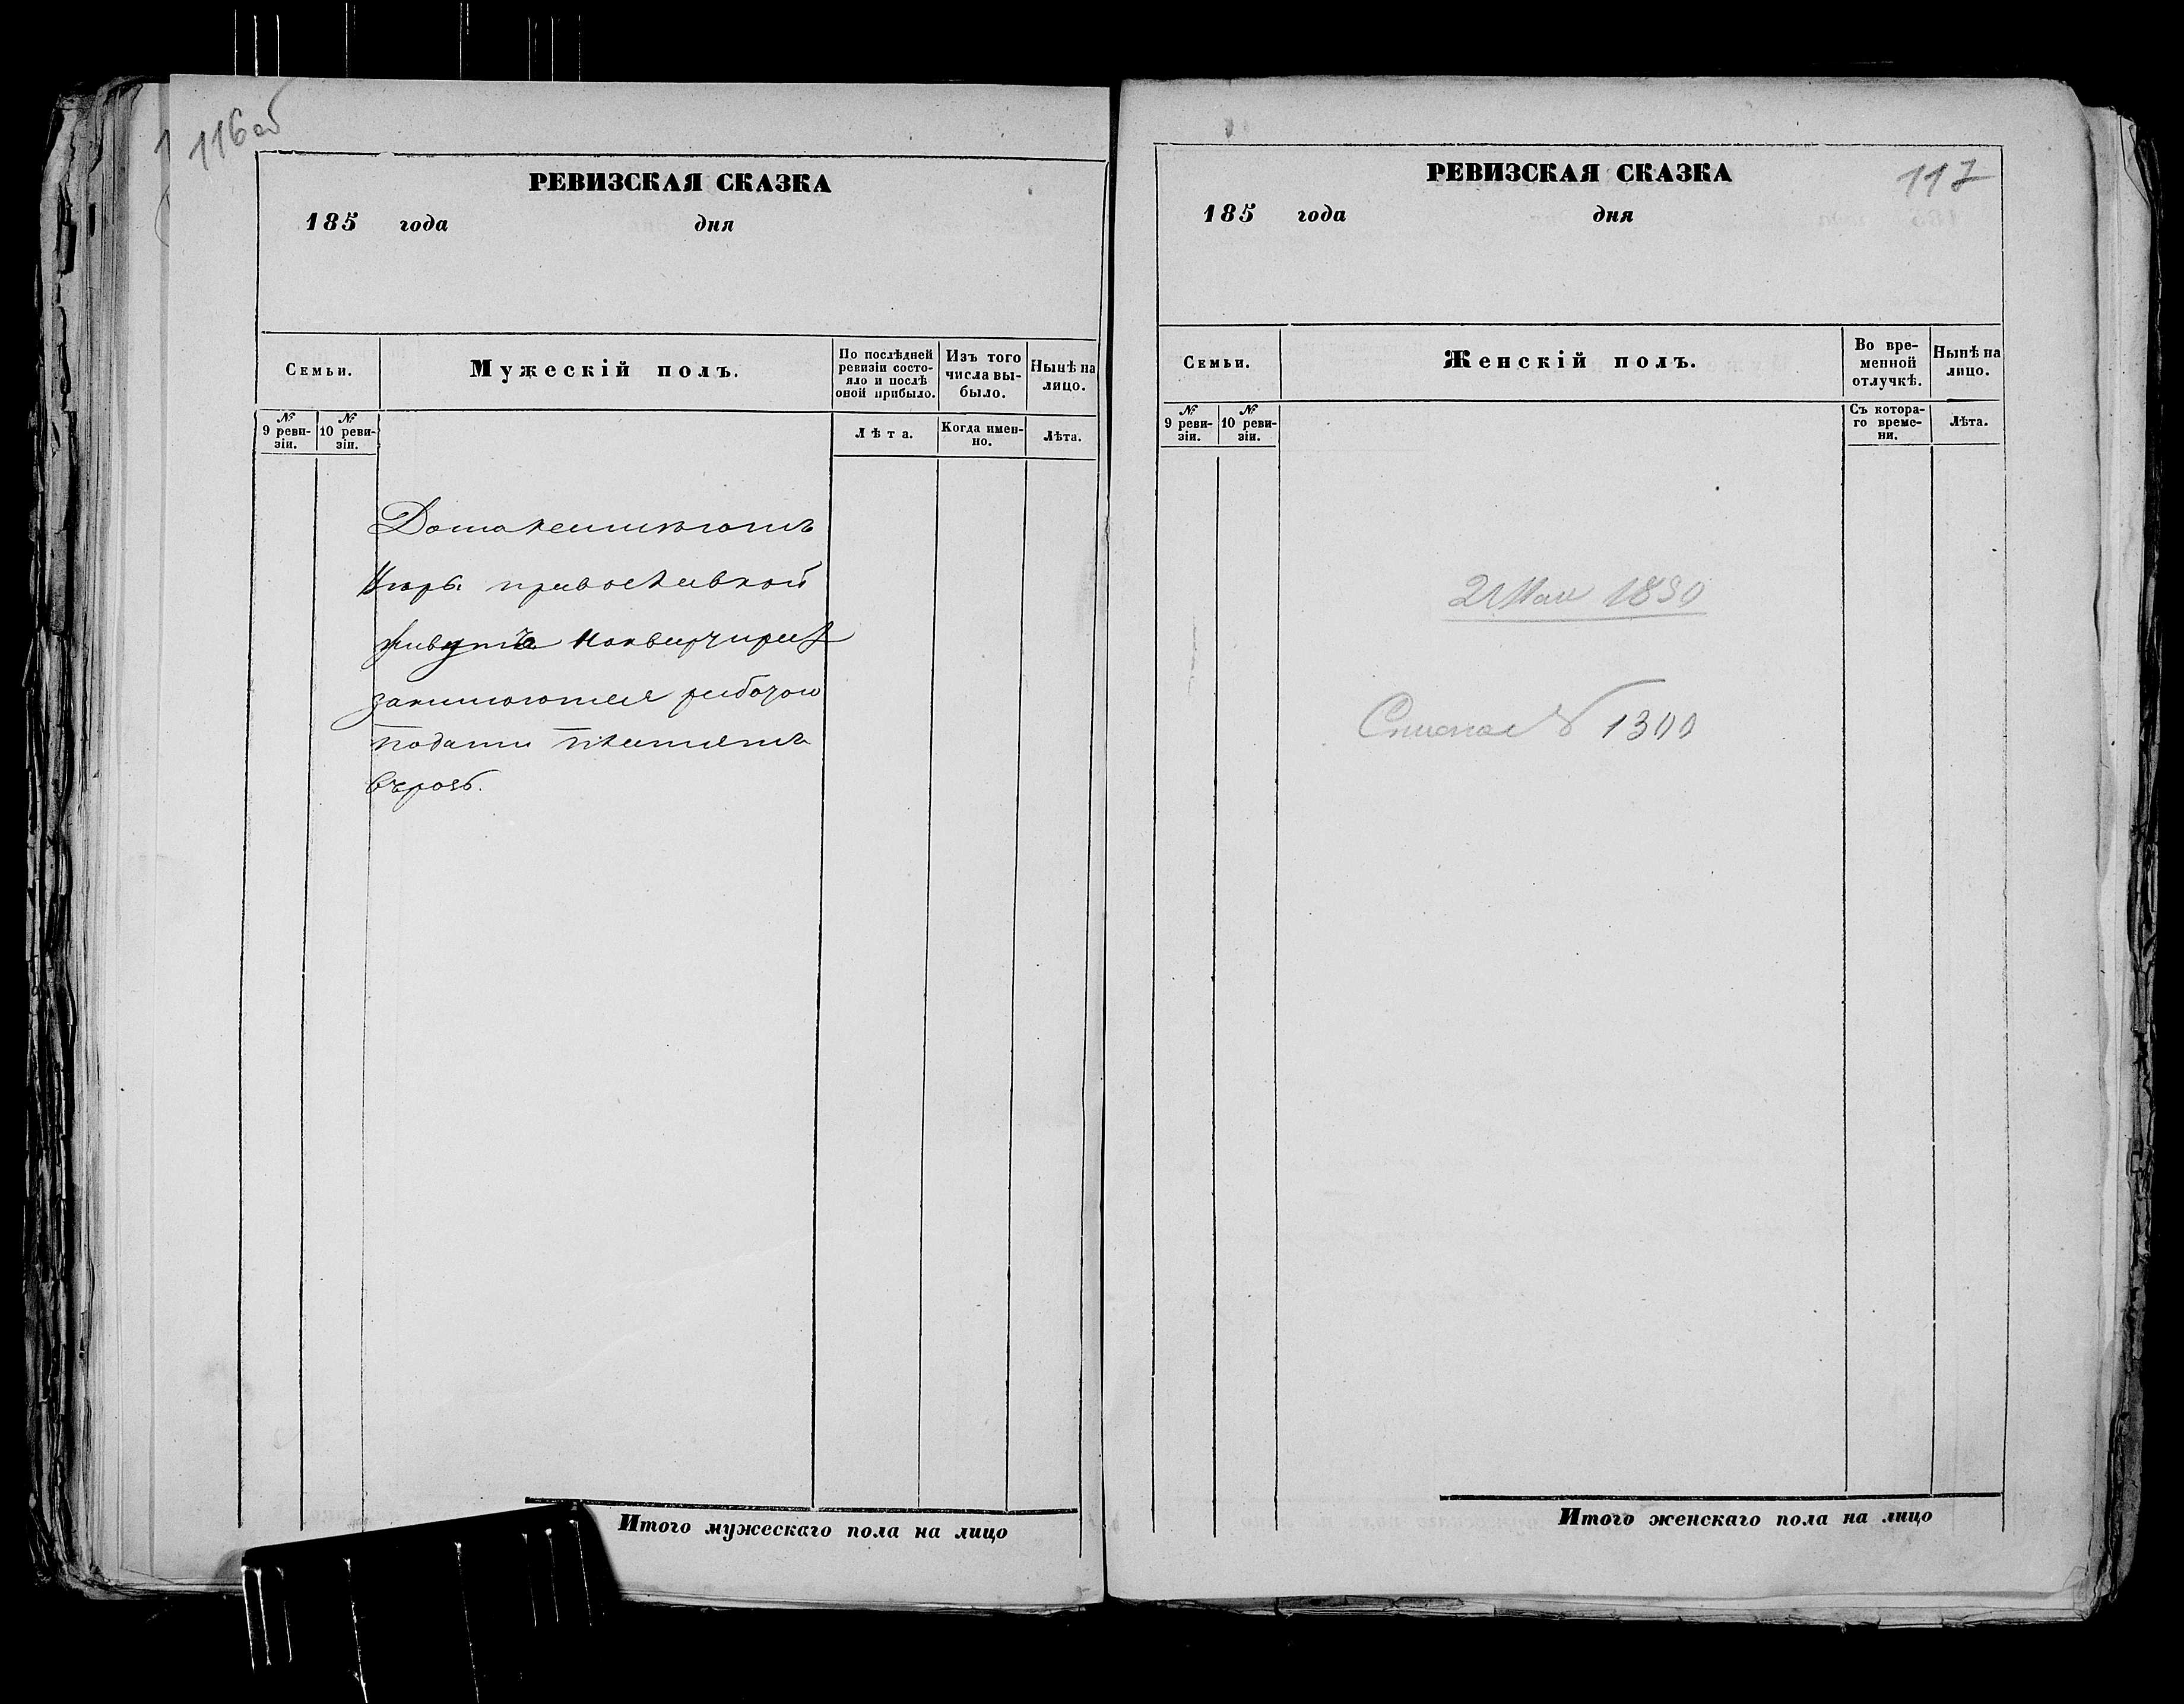 116 об
РЕВИЗСКАЯ СКАЗКА
185 года дня
Семьи.
Мужескій полъ.
По послѣдней ревизіи состо-
яло и послѣ
оной прибыло.
Изъ того
числа вы-
было.
Нынѣ на
лицо.
№ 9 реви-
зіи.
№ 10 реви-
зіи.
Лѣта.
Когда имен-
но.
Лѣта.
православной
живутъ
занимаются
подати платятъ
Итого мужескаго пола на лицо
117
РЕВИЗСКАЯ СКАЗКА
185 года дня
Семьи.
Женскій полъ.
Во вре-
менной
отлучкѣ.
Нынѣ на
лицо.
№ 9 реви-
зіи.
№ 10 реви-
зіи.
Съ котора-
го време-
ни.
Лѣта.
21 Мая
1300
Итого женскаго пола на лицо